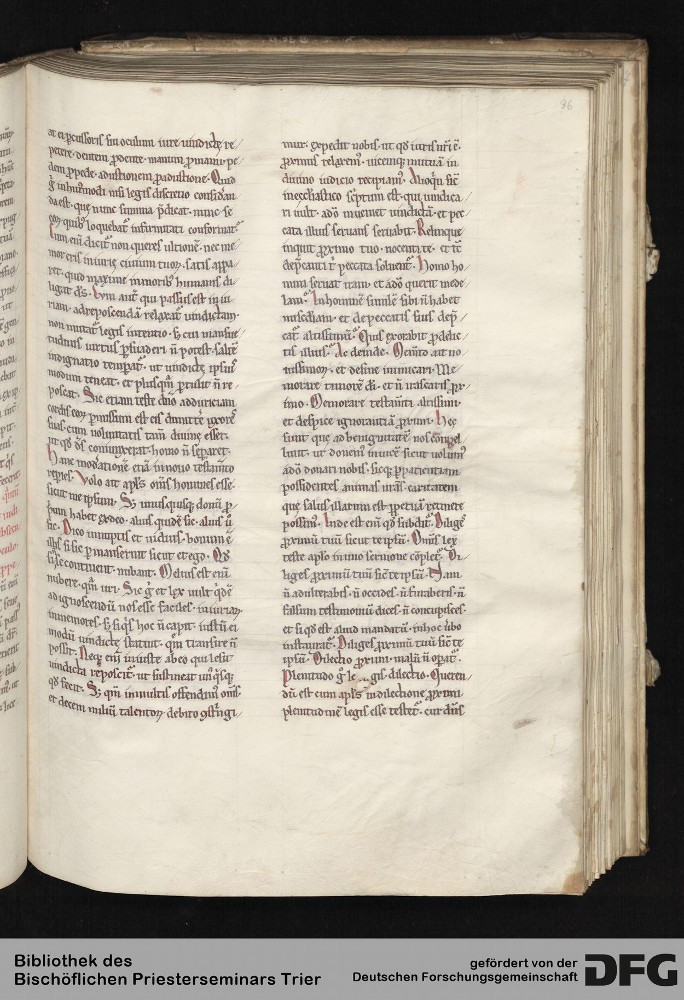 96
at ei percussoris sui oculum iure uindicte re
petere. dentem pro dente. manum pro manu. pe
dem pro pede. adustionem pro adustione. Quid
g̅ inhui᾽modi nisi legis discretio consideran
da est. que nunc summa p̅dicat. nunc se
eor quib; loquebat᾽ infirmitati conformat᾽.
Cum eni̅ dicit᾽ non queres ultione̅. nec me
mor eris iniurie ciuium tuor. satis appa
ret. quid maxime in moribus humanis di
ligat ds̅. Eum aut̅ qui passus est iniu
riam. ad reposcenda̅ relaxat᾽ uindictam.
non mutat᾽ legis intentio. s; cui mansue
tudinis uirtus p̲suaderi n̅ potest. salte̅
indignatio temperat᾽. ut uindicte ipsius
modum teneat. et plusqua̅ pertulit n̅ re
poscat. Sic etiam teste dn̅o ad duriciam
cordis eor permissum est eis dimittere uxores
suas. cum uoluntatis tam̅ diuine esset.
ut qd̅ ds̅ coniunxerat. homo n̅ separet.
Hanc moderatione̅ etia̅ in nouo testam̅to
reperies. Volo ait apl̅s om̅s homines esse
sicut me ipsum. S; unus quisq; donu̅ p̅
prium habet ex deo. alius quide̅ sic. alius u̅
sic. Dico innuptis et uiduis. bonum e̅
illis si sic permanserint sicut et ego. Qd̅
si se n̅ continent. nubant. Melius est eni̅
nubere. qua̅ uri. Sic g̅ et lex uult q̅de̅
ad ignoscendu̅ nos esse faciles. iniuriar
inmemores. s; si q̅s hoc n̅ capit. iustu̅ ei
modu̅ uindicte statuit. que̅ transire n̅
possit. Neq; eni̅ iniuste ab eo qui lesit
uindicta reposcit᾽. ut sustineat un᾽q̅sq;
qd̅ fecit. S; qm̅ in multis offendim᾽ om̅s
et decem miliu̅ talentor debito co̅stringi
mur. expedit nobis. ut qd̅ iuris nr̅i e̅.
proximis relaxem᾽. uicemq; mutua̅ in
diuino iudicio recipiam᾽. Alioqui̅ sic̅
in ecclesiastico scriptum est. qui uindica
ri uult. a dn̅o inueniet uindicta̅. et pec
cata illius seruans seruabit. Relinque
inquit proximo tuo nocenti te. et tc̅
deprecanti t᾽ peccata soluent᾽. Homo ho
mini seruat iram. et a dn̅o querit mede
lam. In homine̅ simile̅ sibi n̅ habet
misc̅diam. et de peccatis suis depre
cat᾽ altissimu̅. Quis exorabit pro delic
tis illius. Ac deinde. Memento ait no
uissimor. et desine inimicari. Me
morare timore̅ di̅. et n̅ irascaris pro
ximo. Memorare testam̅ti altissimi.
et despice ignorantia̅ proximi. Hec
sunt que ad benignitate̅ nos co̅pel
lunt. ut donem᾽ inuice̅ sicut uolum᾽
a dn̅o donari nobis. sicq; per patientiam
possidentes animas nr̅as. caritatem
que salus illarum est. perpetua̅ retinere
possim᾽. Inde est eni̅ qd̅ subdit᾽. Diliges
proximu̅ tuu̅ sicut te ipsu̅. Om̅is lex
teste apl̅o in uno sermone co̅plet᾽. Di
liges proximu̅ tuu̅ sic̅ te ipsu̅. Nam
n̅ adulterabis. n̅ occides. n̅ furaberis. n̅
falsum testimoniu̅ dices. n̅ concupisces.
et si qd̅ est aliud mandatu̅. in hoc u̅bo
instaurat᾽. Diliges proximu̅ tuu̅ sic̅ te
ipsu̅. Dilectio proximi. malu̅ n̅ operat᾽.
Plenitudo g̅ legis dilectio. Queren
du̅ est cum apl̅s in dilectione proximi
plenitudine̅ legis esse testet᾽. cur dn̅s
Bibliothek des
Bischöflichen Priesterseminars Trier
gefördert von der
Deutschen Forschungsgemeinschaft
DFG